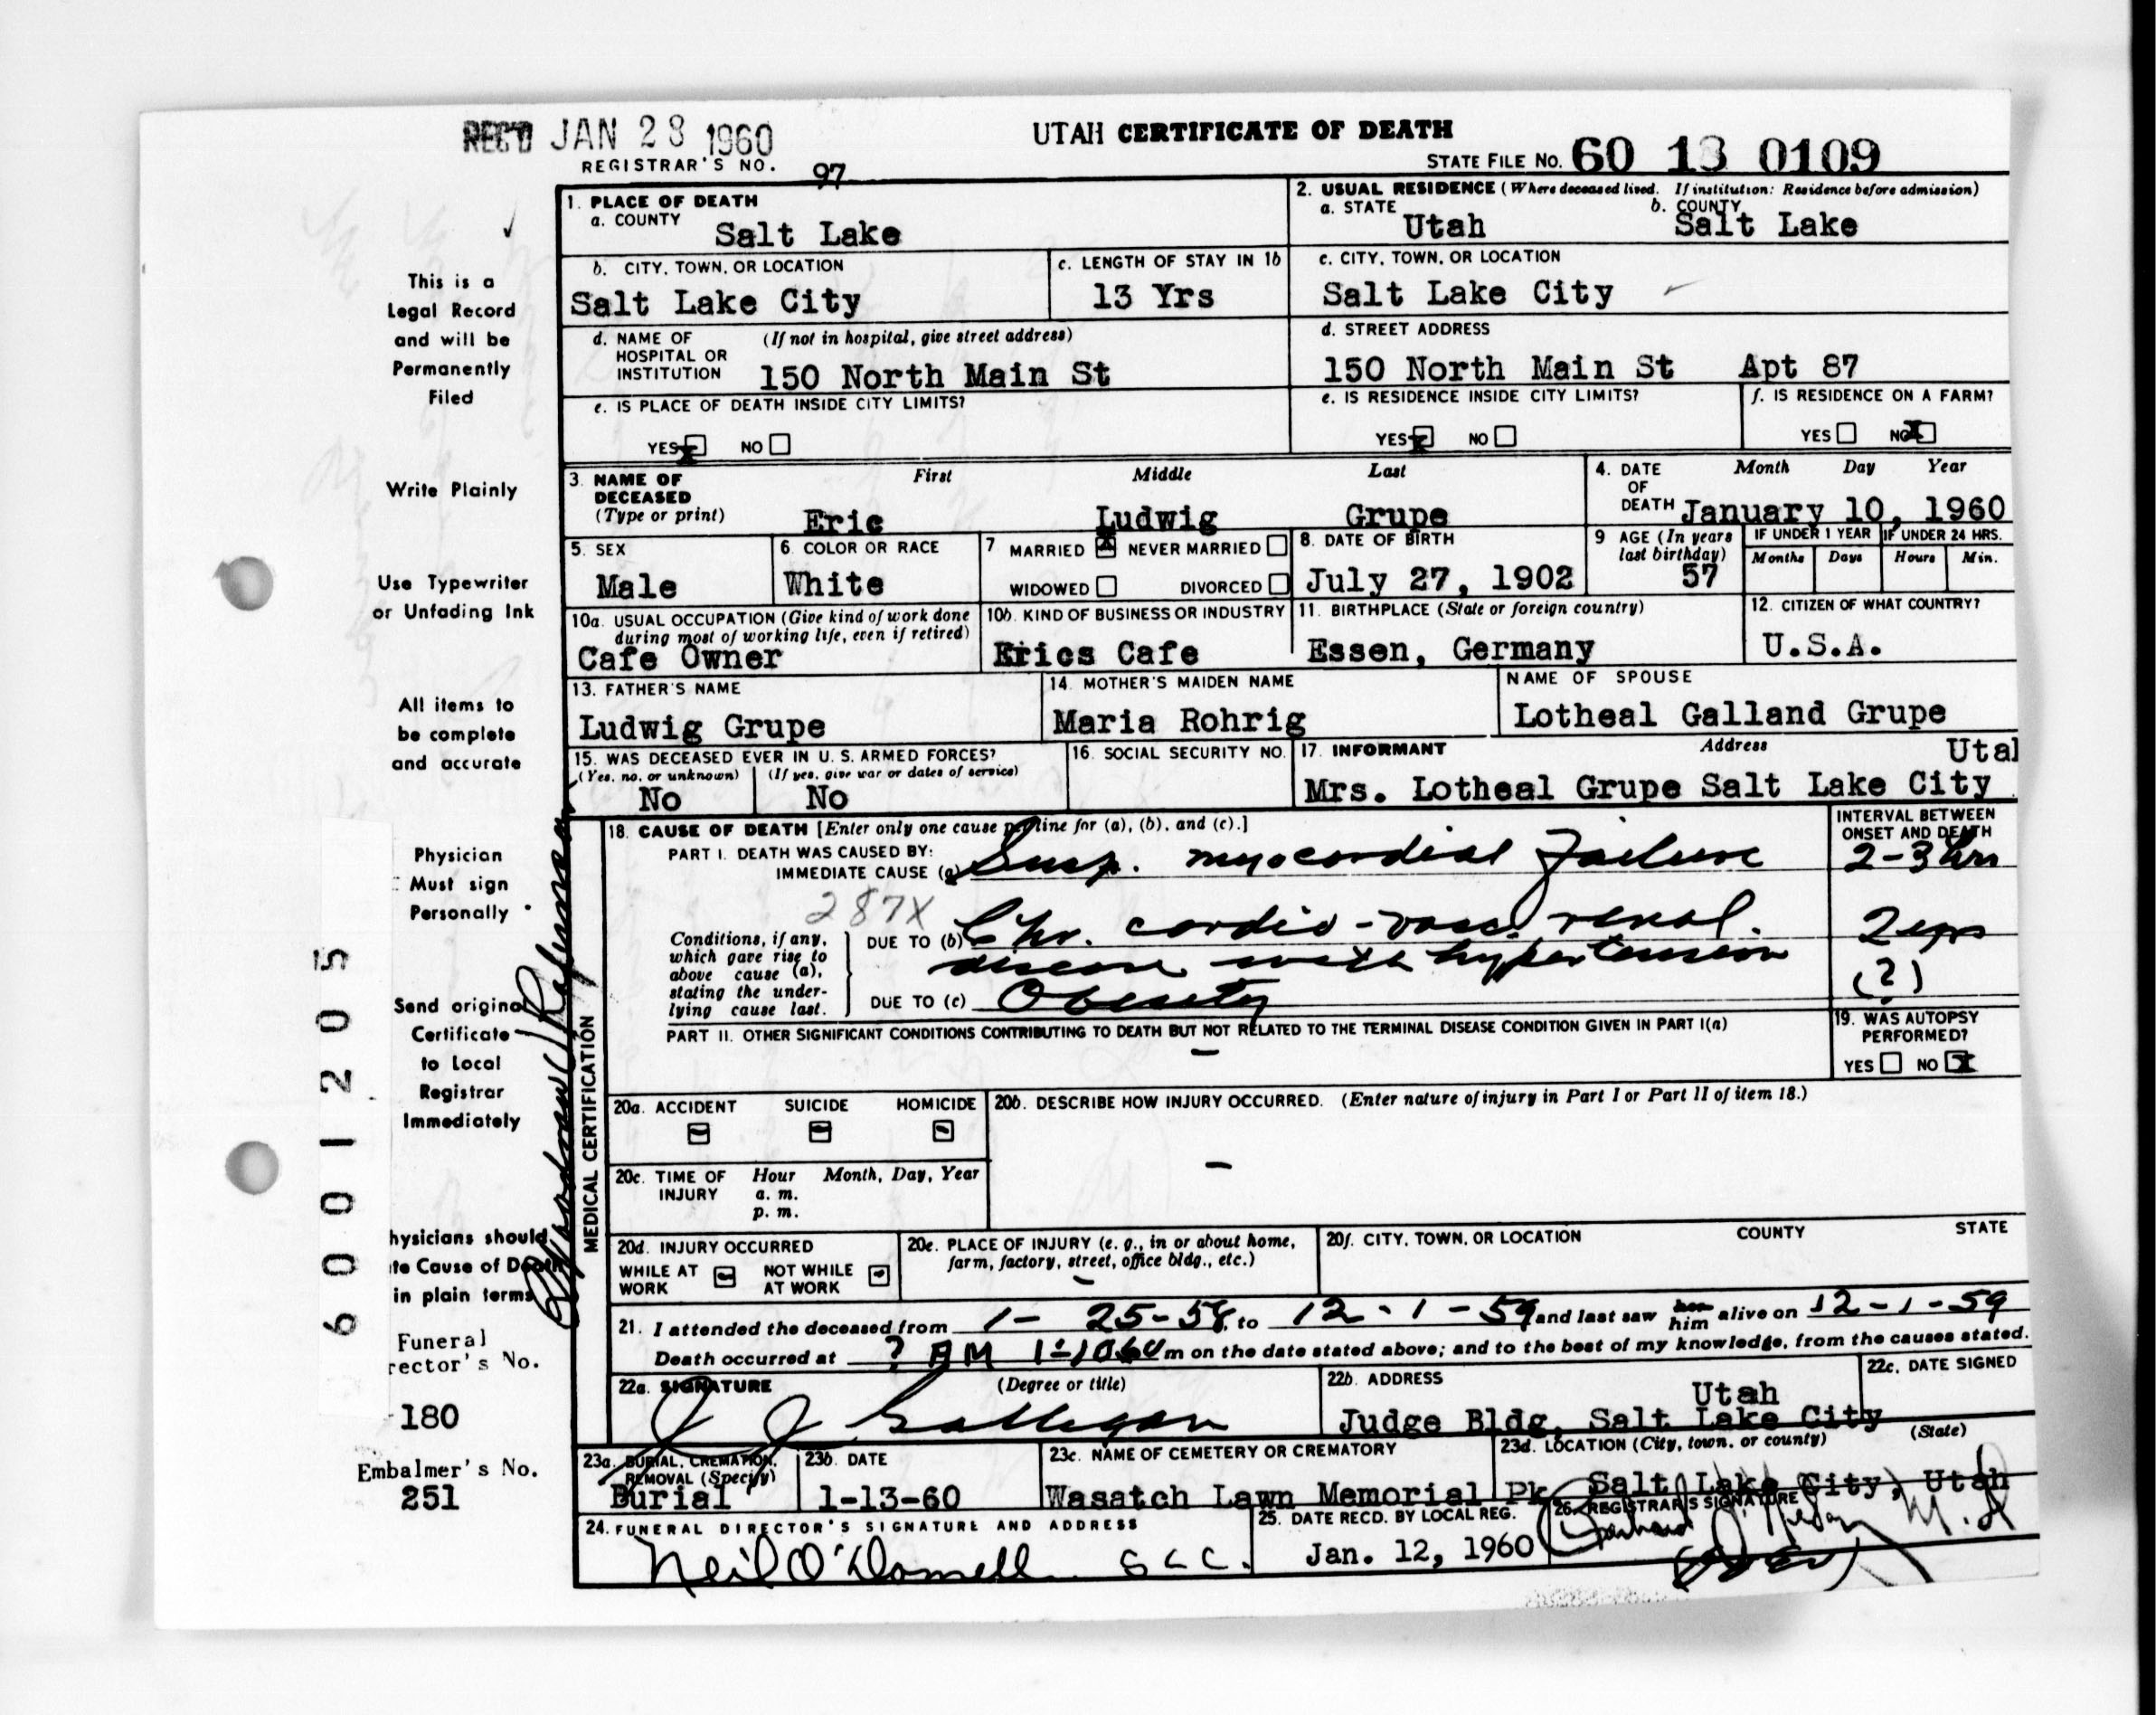 REC'D JAN 28 1960
UTAH CERTIFICATE OF DEATH
REGISTRAR'S NO. 97
STATE FILE NO. 60 13 0109
This is a
Legal Record
and will be
Permanently
Filed
Write Plainly
Use Typewriter
or Unfading Ink
All items to
be complete
and accurate
Physician
Must sign
Personally
Send original
Certificate
to Local
Registrar
Immediately
hysicians should
te Cause of Death
in plain terms
Funeral
rector's No.
180
Embalmer's No.
251
6001205
1. PLACE OF DEATH
a. COUNTY
Salt Lake
2. USUAL RESIDENCE (Where deceased lived. If institution: Residence before admission)
a. STATE Utah
b. COUNTY Salt Lake
b. CITY, TOWN, OR LOCATION
Salt Lake City
c. LENGTH OF STAY IN 1b
13 Yrs
c. CITY, TOWN, OR LOCATION
Salt Lake City
d. NAME OF HOSPITAL OR INSTITUTION (If not in hospital, give street address)
150 North Main St
d. STREET ADDRESS
150 North Main St Apt 87
e. IS PLACE OF DEATH INSIDE CITY LIMITS?
YES X NO
e. IS RESIDENCE INSIDE CITY LIMITS?
YES X NO
f. IS RESIDENCE ON A FARM?
YES NO X
3. NAME OF DECEASED (Type or print)
First Middle Last
Eric Ludwig Grupe
4. DATE OF DEATH
Month Day Year
January 10, 1960
5. SEX
Male
6. COLOR OR RACE
White
7 MARRIED X NEVER MARRIED
WIDOWED DIVORCED
8. DATE OF BIRTH
July 27, 1902
9 AGE (In years last birthday)
57
IF UNDER 1 YEAR
Months Days
IF UNDER 24 HRS.
Hours Min.
10a. USUAL OCCUPATION (Give kind of work done
during most of working life, even if retired)
Cafe Owner
10b. KIND OF BUSINESS OR INDUSTRY
Erics Cafe
11. BIRTHPLACE (State or foreign country)
Essen, Germany
12. CITIZEN OF WHAT COUNTRY?
U.S.A.
13. FATHER'S NAME
Ludwig Grupe
14. MOTHER'S MAIDEN NAME
Maria Rohrig
NAME OF SPOUSE
Lotheal Galland Grupe
15. WAS DECEASED EVER IN U. S. ARMED FORCES?
(Yes, no, or unknown) (If yes, give war or dates of service)
No No
16. SOCIAL SECURITY NO.
17. INFORMANT Address
Utal
Mrs. Lotheal Grupe Salt Lake City
MEDICAL CERTIFICATION
18. CAUSE OF DEATH [Enter only one cause per line for (a), (b), and (c).]
INTERVAL BETWEEN
ONSET AND DEATH
PART I. DEATH WAS CAUSED BY:
IMMEDIATE CAUSE (a) Susp. myocardial Failure 2-3 hrs
287X
Conditions, if any,
which gave rise to
above cause (a),
stating the under-
lying cause last.
DUE TO (b) Chr. cardio-vasc. renal. 2 yrs
disease with hypertension
DUE TO (c) Obesity (?)
PART II. OTHER SIGNIFICANT CONDITIONS CONTRIBUTING TO DEATH BUT NOT RELATED TO THE TERMINAL DISEASE CONDITION GIVEN IN PART I(a)
–
19. WAS AUTOPSY
PERFORMED?
YES NO X
20a. ACCIDENT SUICIDE HOMICIDE
20b. DESCRIBE HOW INJURY OCCURRED. (Enter nature of injury in Part I or Part II of item 18.)
–
20c. TIME OF INJURY
Hour Month, Day, Year
a. m.
p. m.
20d. INJURY OCCURRED
WHILE AT WORK NOT WHILE AT WORK
20e. PLACE OF INJURY (e. g., in or about home,
farm, factory, street, office bldg., etc.)
20f. CITY, TOWN, OR LOCATION COUNTY STATE
21. I attended the deceased from 1- 25-58, to 12-1-59 and last saw her him alive on 12-1-59
Death occurred at ? AM m on the date stated above; and to the best of my knowledge, from the causes stated.
22a. SIGNATURE (Degree or title)
J J Galligan
22b. ADDRESS
Utah
Judge Bldg, Salt Lake City
22c. DATE SIGNED
23a. BURIAL, CREMATION,
REMOVAL (Specify)
Burial
23b. DATE
1-13-60
23c. NAME OF CEMETERY OR CREMATORY
Wasatch Lawn Memorial Pk
23d. LOCATION (City, town, or county) (State)
Salt Lake City, Utah
24. FUNERAL DIRECTOR'S SIGNATURE AND ADDRESS
Neil O'Donnell S L C.
25. DATE RECD. BY LOCAL REG.
Jan. 12, 1960
26. REGISTRAR'S SIGNATURE
M.D